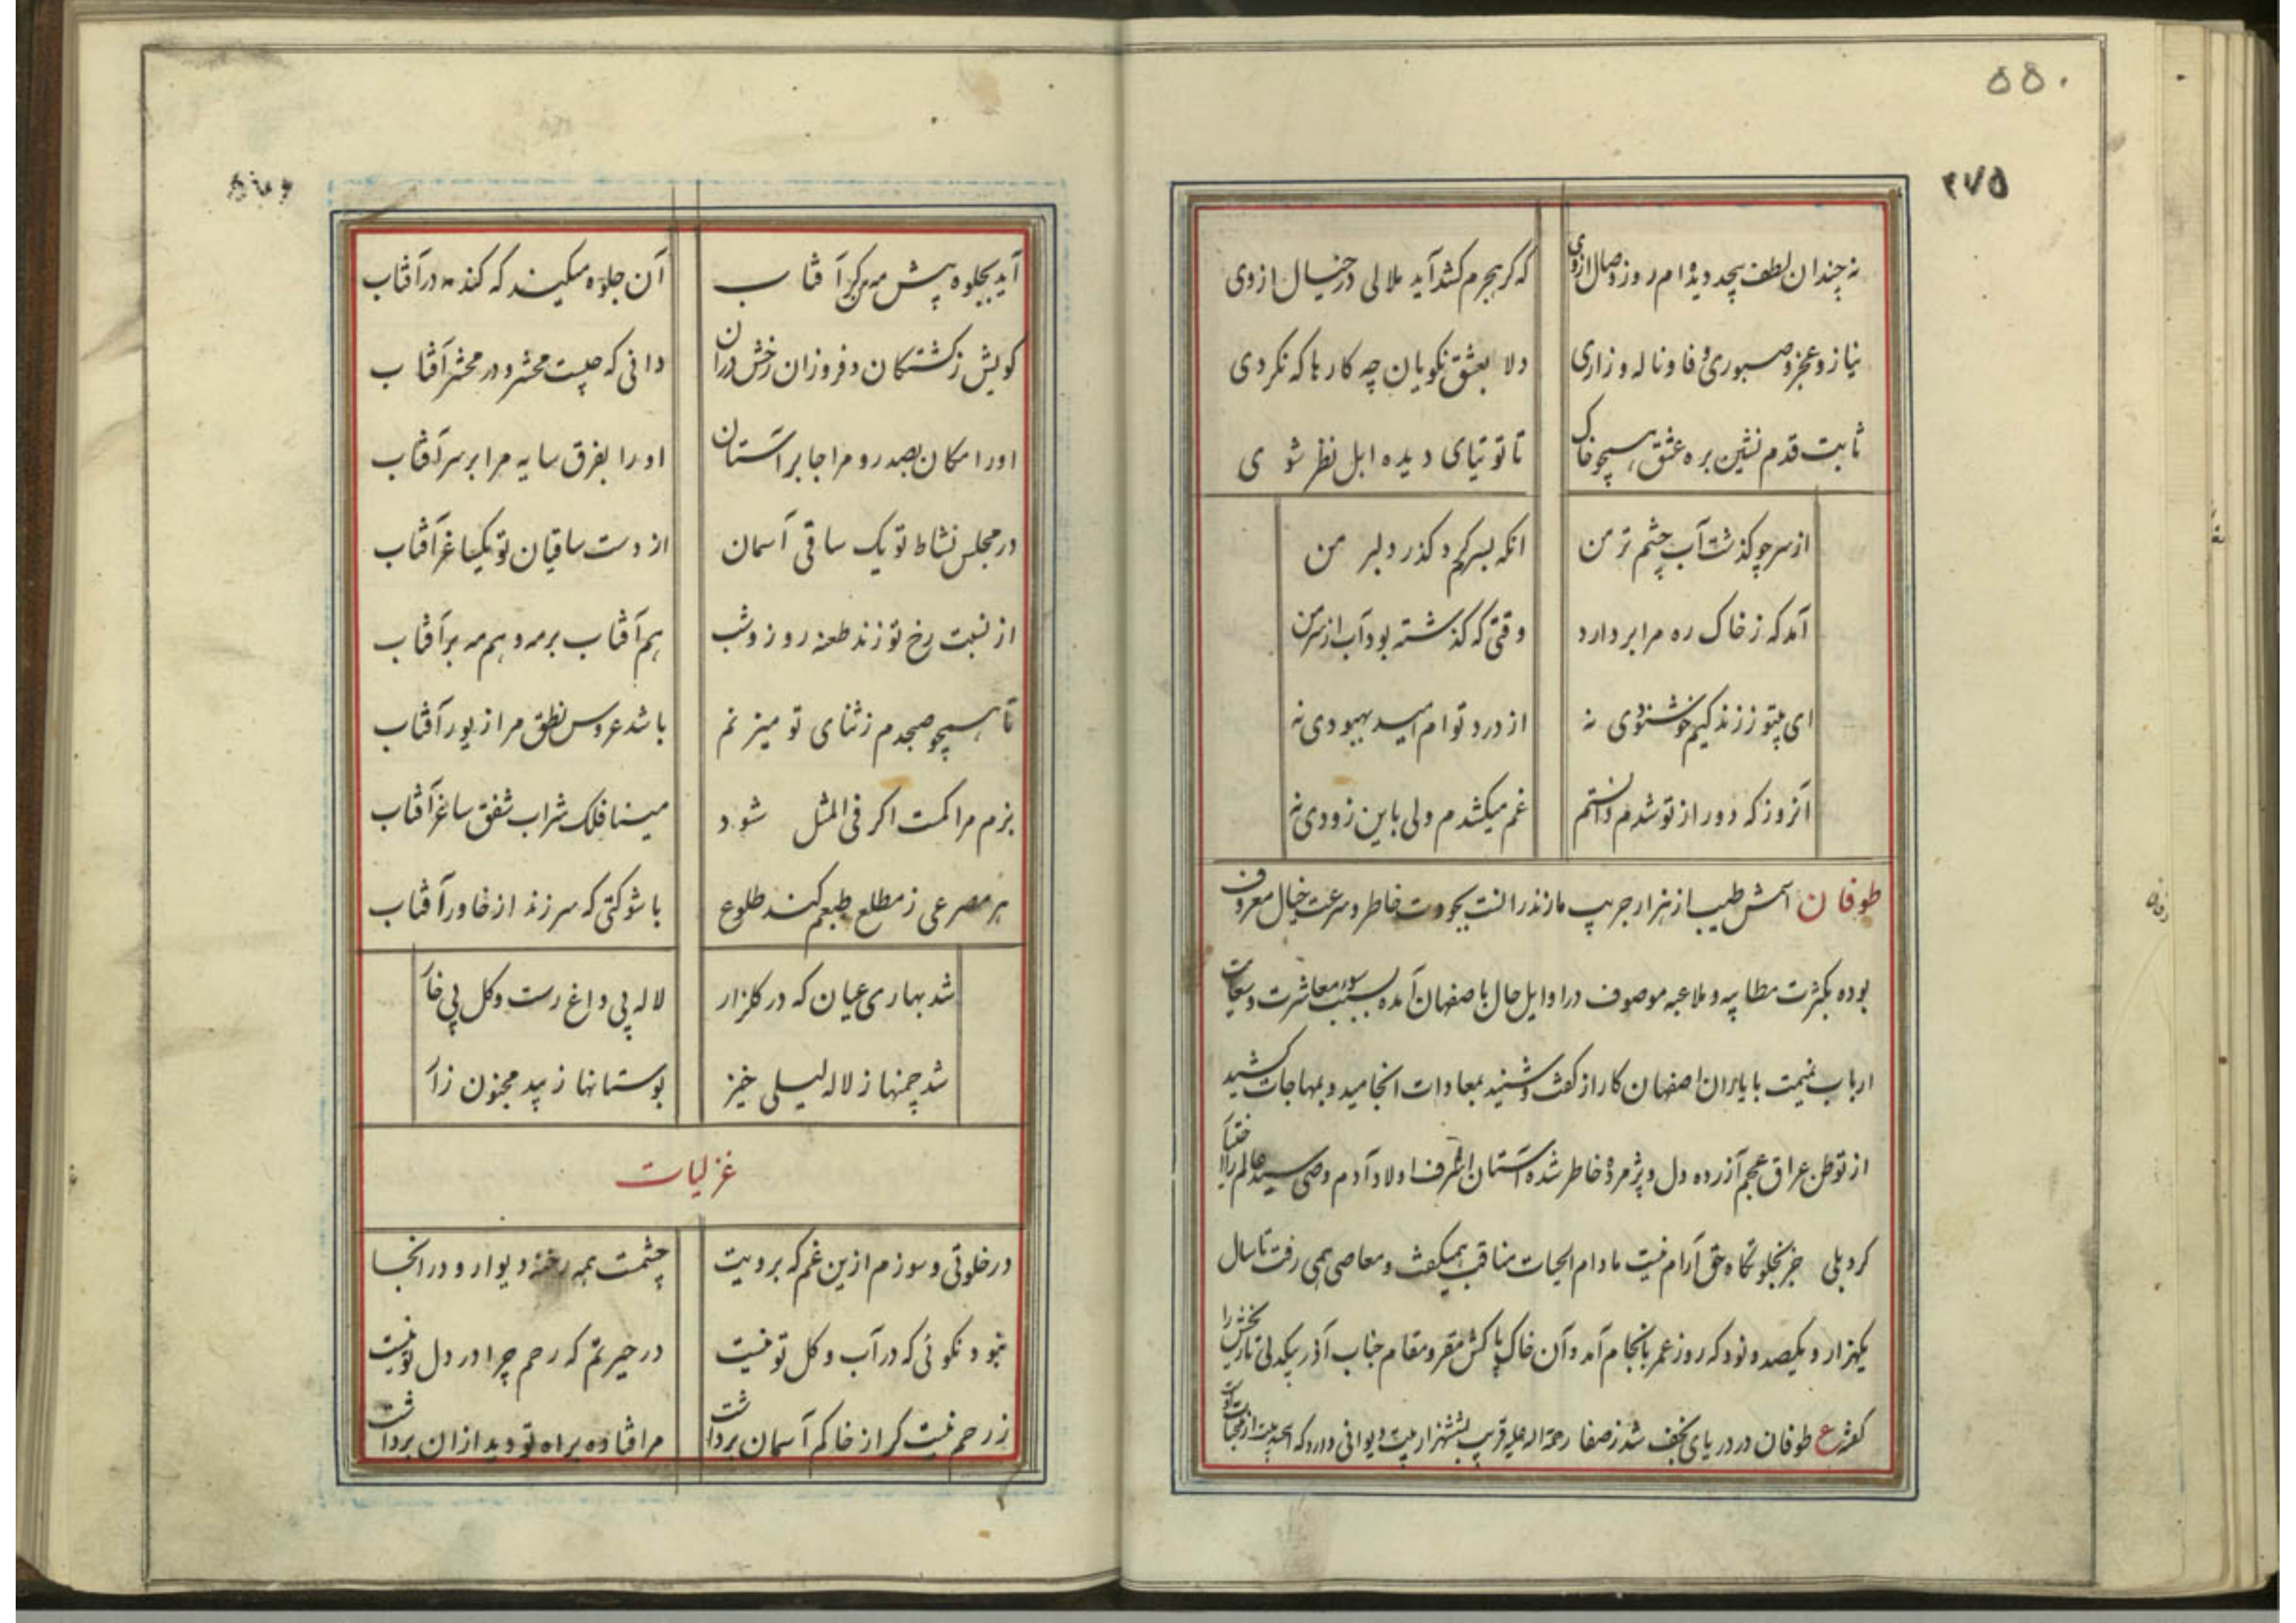 ۵۵۰
۲۷۵
نه چندان لطف بیحد دیده ام روز وصال ازوی
که گر هجرم کشد آید ملالی در خیال ازوی
نیاز و عجز و صبوری وفا و ناله و زاری
دلا بعشق نکویان چه کارها که نکردی
ثابت قدم نشین بره عشق همچو خاک
تا توتیای دیده اهل نظر شوی
از سر چو گذشت آب چشم تر من
آنکه بسرم گذر دلبر من
آمد که ز خاک ره مرا بردارد
وقتی که گذشته بود آب از سر من
ای بیتو ز زندگیم خوشنودی نه
از درد توام امید بهبودی نه
آنروز که دور از تو شدم دانستم
غم میکشدم ولی باین زودی نه
طوفان اسمش طیب از هزار جریب مازندرانست بجودت خاطر و سرعت خیال معروف
بوده بکثرت مطایبه و ملاعبه موصوف در اوایل حال باصفهان آمده بسبب سوء معاشرت و سعایت
ارباب نمیمت با یاران اصفهان کار از گفت و شنید بمعادات انجامید و بمهاجات کشید
از توطن عراق عجم آزرده دل و پژمرده خاطر شده آستان اشرف اولاد آدم و وصی سید عالم را اختیار
کرد بلی جز بخلوتگاه حق آرام نیست مادام الحیات مناقب همیگفت و معاصی همی رفت تا سال
یکهزار و یکصد و نود که روز عمر بانجام آمد و آن خاک پاکش مقر و مقام جناب آذر بیکدلی تاریخش را
گفته ع طوفان در دریای نجف شد ز صفا رحمة اله علیه قریب بششهزار بیت دیوانی دارد که
آید بجلوه پیش مه من گر آفتاب
آن جلوه میکند که کند مه در آفتاب
کویش ز کشتگان و فروزان رخش در آن
دانی که چیست محشر و در محشر آفتاب
او را مکان بصدر و مرا جا بر آستان
او را بفرق سایه مرا بر سر آفتاب
در مجلس نشاط تو یک ساقی آسمان
از دست ساقیان تو یکساغر آفتاب
از نسبت رخ تو زند طعنه روز و شب
هم آفتاب بر مه و هم مه بر آفتاب
تا همچو صبحدم ز ثنای تو میزنم
باشد عروس نطق مرا زیور آفتاب
بزم مراکمت اگر فی المثل شود
مینا فلک شراب شفق ساغر آفتاب
هر مصرعی ز مطلع طبعم کند طلوع
با شوکتی که سر زند از خاور آفتاب
شد بهاری عیان که در گلزار
لاله بی داغ رست و گل بی خار
شد چمنها ز لاله لیلی خیز
بوستانها ز بید مجنون زار
غزلیات
در خلوتی و سوزم ازین غم که برویت
چشمت همه رخنهٔ دیوار و در انجا
نبود نکوئی که در آب و گل تو نیست
در حیرتم که رحم چرا در دل تو نیست
ز رحم نیست گر از خاکم آسمان برداشت
مرا فتاده براه تو دید ازان برداشت